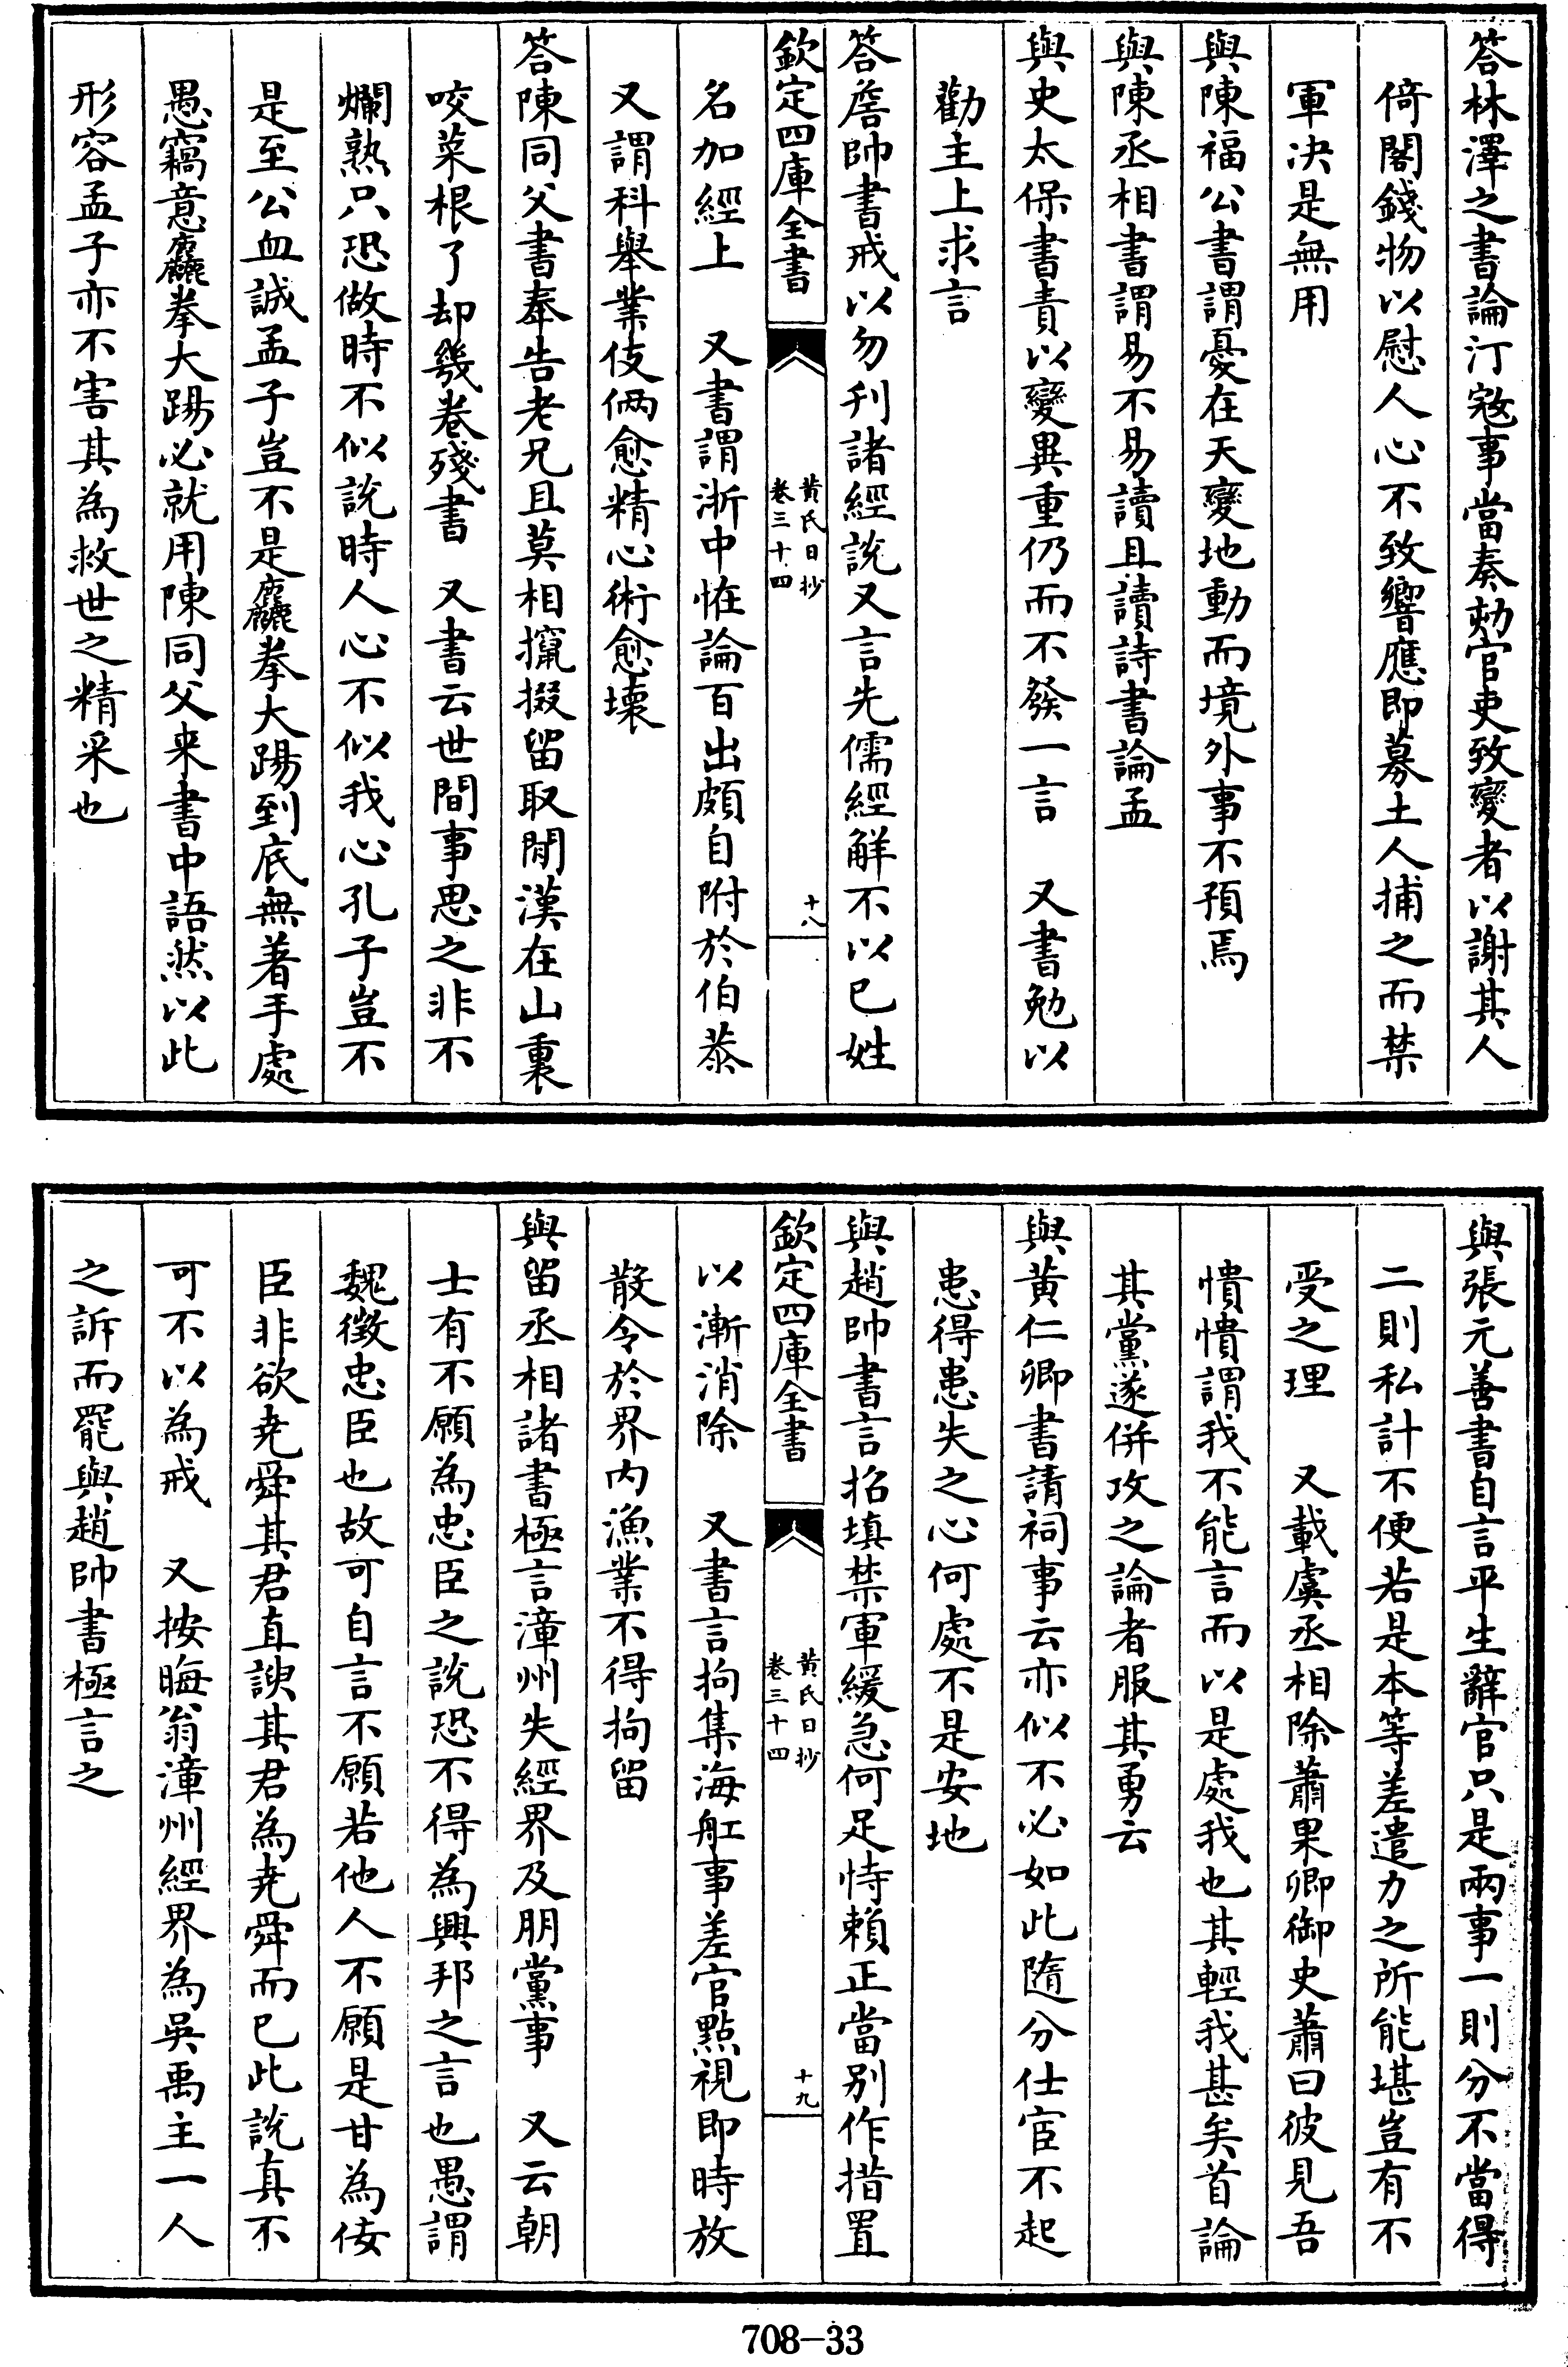 答林澤之書論汀𡨥事當奏劾官吏致變者以謝其人
倚閣錢物以慰人心不致響應即募土人捕之而禁
軍决是無用
與陳福公書謂憂在天變地動而境外事不預焉
與陳丞相書謂易不易讀且讀詩書論孟
與史太保書責以變異重仍而不發一言　又書勉以
勸主上求言
答詹帥書戒以勿刊諸經說又言先儒經解不以已姓
欽定四庫全書
黄氏日抄
卷三十四
十八
名加經上　又書謂浙中恠論百出頗自附於伯恭
又謂科舉業伎倆愈精心術愈壞
答陳同父書奉告老兄且莫相攛掇留取閒漢在山裏
咬菜根了却幾卷殘書　又書云世間事思之非不
爛熟只恐做時不似說時人心不似我心孔子豈不
是至公血誠孟子豈不是麤拳大踢到底無著手處
愚竊意麤拳大踢必就用陳同父来書中語然以此
形容孟子亦不害其為救世之精采也
與張元善書自言平生辭官只是兩事一則分不當得
二則私計不便若是本等差遣力之所能堪豈有不
受之理　又載虞丞相除蕭果卿御史蕭曰彼見吾
憒憒謂我不能言而以是處我也其輕我甚矣首論
其黨遂併攻之論者服其勇云
與黄仁卿書請祠事云亦似不必如此隨分仕宦不起
患得患失之心何處不是安地
與趙帥書言招填禁軍緩急何足恃賴正當别作措置
欽定四庫全書
黄氏日抄
卷三十四
十九
以漸消除　又書言拘集海舡事差官點視即時放
散令於界内漁業不得拘留
與留丞相諸書極言漳州失經界及朋黨事　又云朝
士有不願為忠臣之說恐不得為興邦之言也愚謂
魏徵忠臣也故可自言不願若他人不願是甘為佞
臣非欲堯舜其君直諛其君為堯舜而已此說真不
可不以為戒　又按晦翁漳州經界為吳禹主一人
之訴而罷與趙帥書極言之
708-33